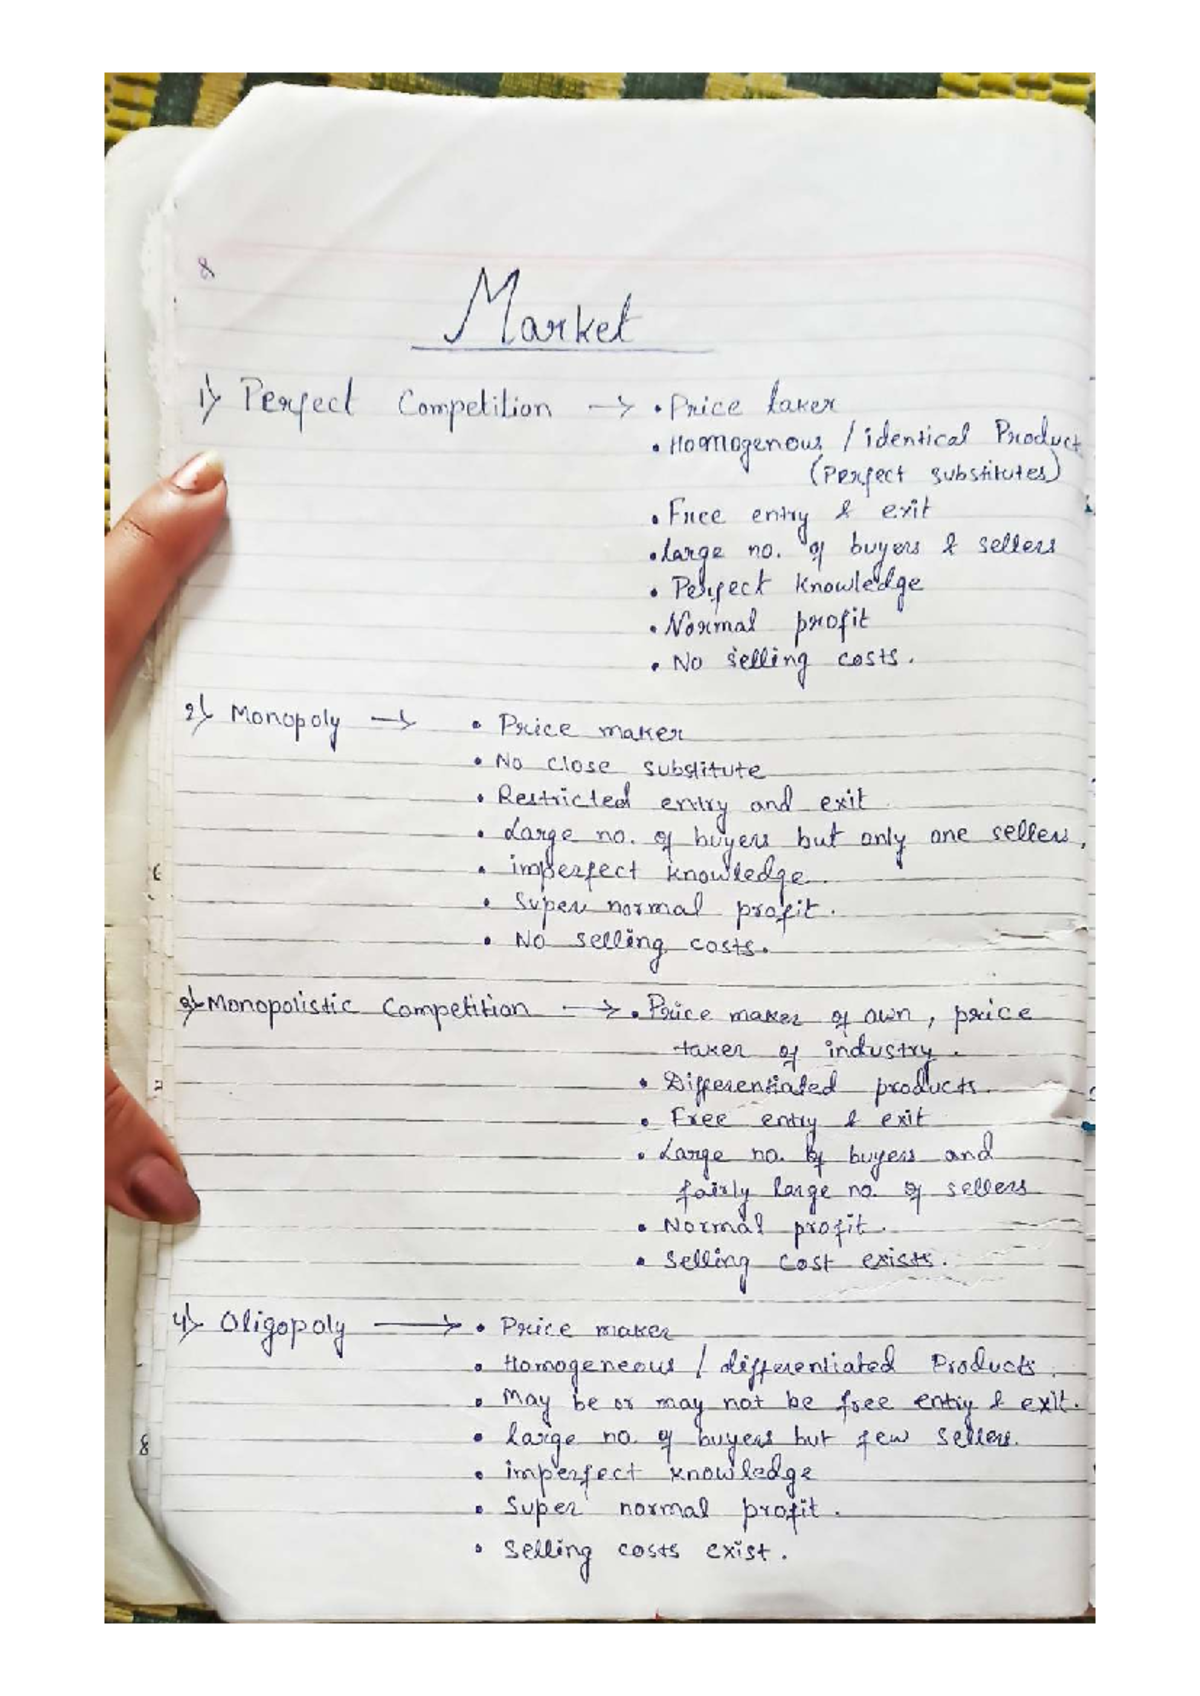 8
Market
1) Perfect Competition → • Price taker
• Homogenous / identical Product
(Perfect substitutes)
• Free entry & exit
• Large no. of buyers & sellers
• Perfect knowledge
• Normal profit
• No selling costs.
2) Monopoly → • Price maker
• No close substitute
• Restricted entry and exit
• Large no. of buyers but only one sellers,
• imperfect knowledge.
• Super normal profit.
• No selling costs.
3) Monopolistic Competition → • Price maker of own, price
taker of industry.
• Differentiated products.
• Free entry & exit
• Large no. of buyers and
fairly large no. of sellers
• Normal profit.
• Selling cost exists.
4) Oligopoly → • Price maker
• Homogeneous / differentiated Products.
• May be or may not be free entry & exit.
• Large no. of buyers but few sellers.
• imperfect knowledge
• Super normal profit.
• Selling costs exist.
8